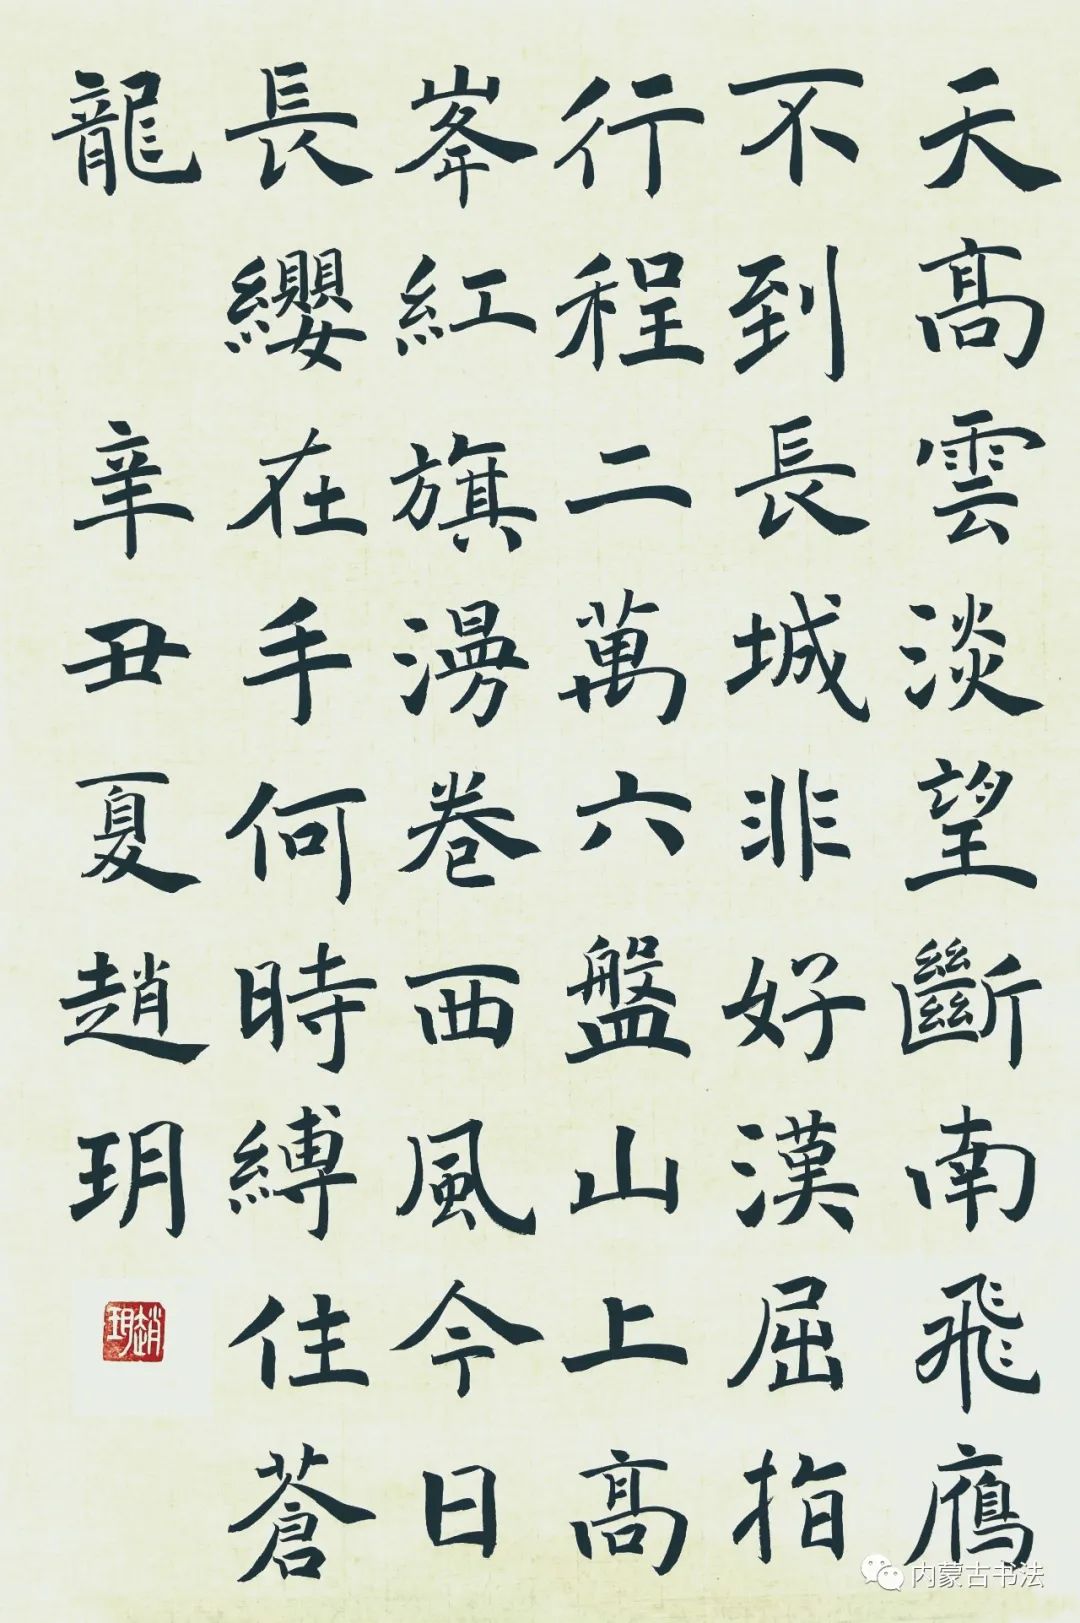 天高雲淡望斷南飛鴈
不到長城非好漢屈指
行程二萬六盤山上高
峯紅旗漫卷西風今日
長纓在手何時縛住蒼
龍
辛丑夏趙玥
趙玥
内蒙古书法